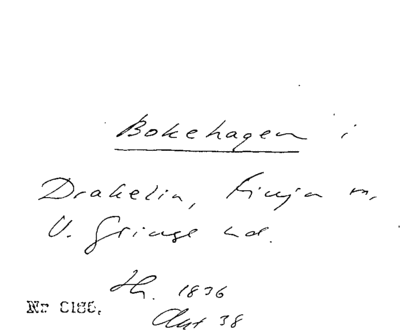 Bokehagen i
Drakelia, Finja m,
V. Göinge hd.
Th. 1836
Akt 38
Nr 0186.